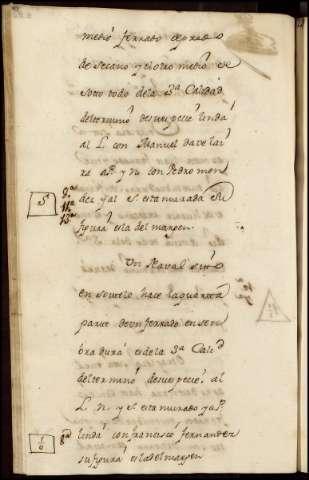 medio ferrado de prado
de secano y el otro medio de
soto todo de la 3ª Calidad
del termino de su especie linda
al L. con Manuel davelai
ra aP. y N. con Pedro men
dez y al S. esta murada su
figura es la del margen.
Un Naval
en soutelo hace la quarta
parte de un ferrado en sem
bradura es de la 3ª Calid
del termino de su especie al
L. N. y el esta murado y a P.
linda con francisco fernandez
su figura es la del margen